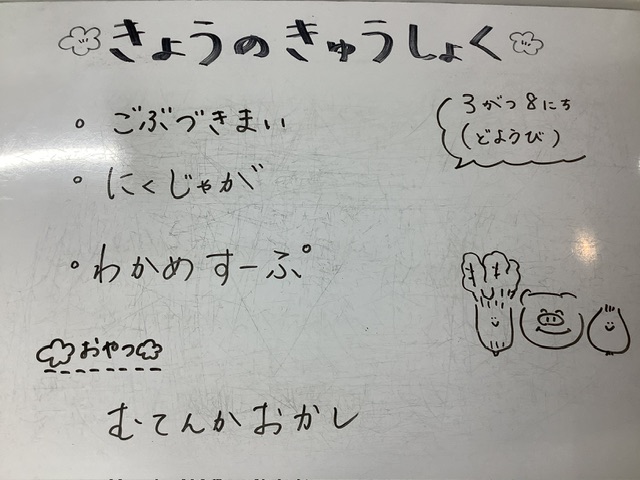 きょうのきゅうしょく
3がつ8にち
(どようび)
・ごぶづきまい
・にくじゃが
・わかめすーぷ
おやつ
むてんかおかし